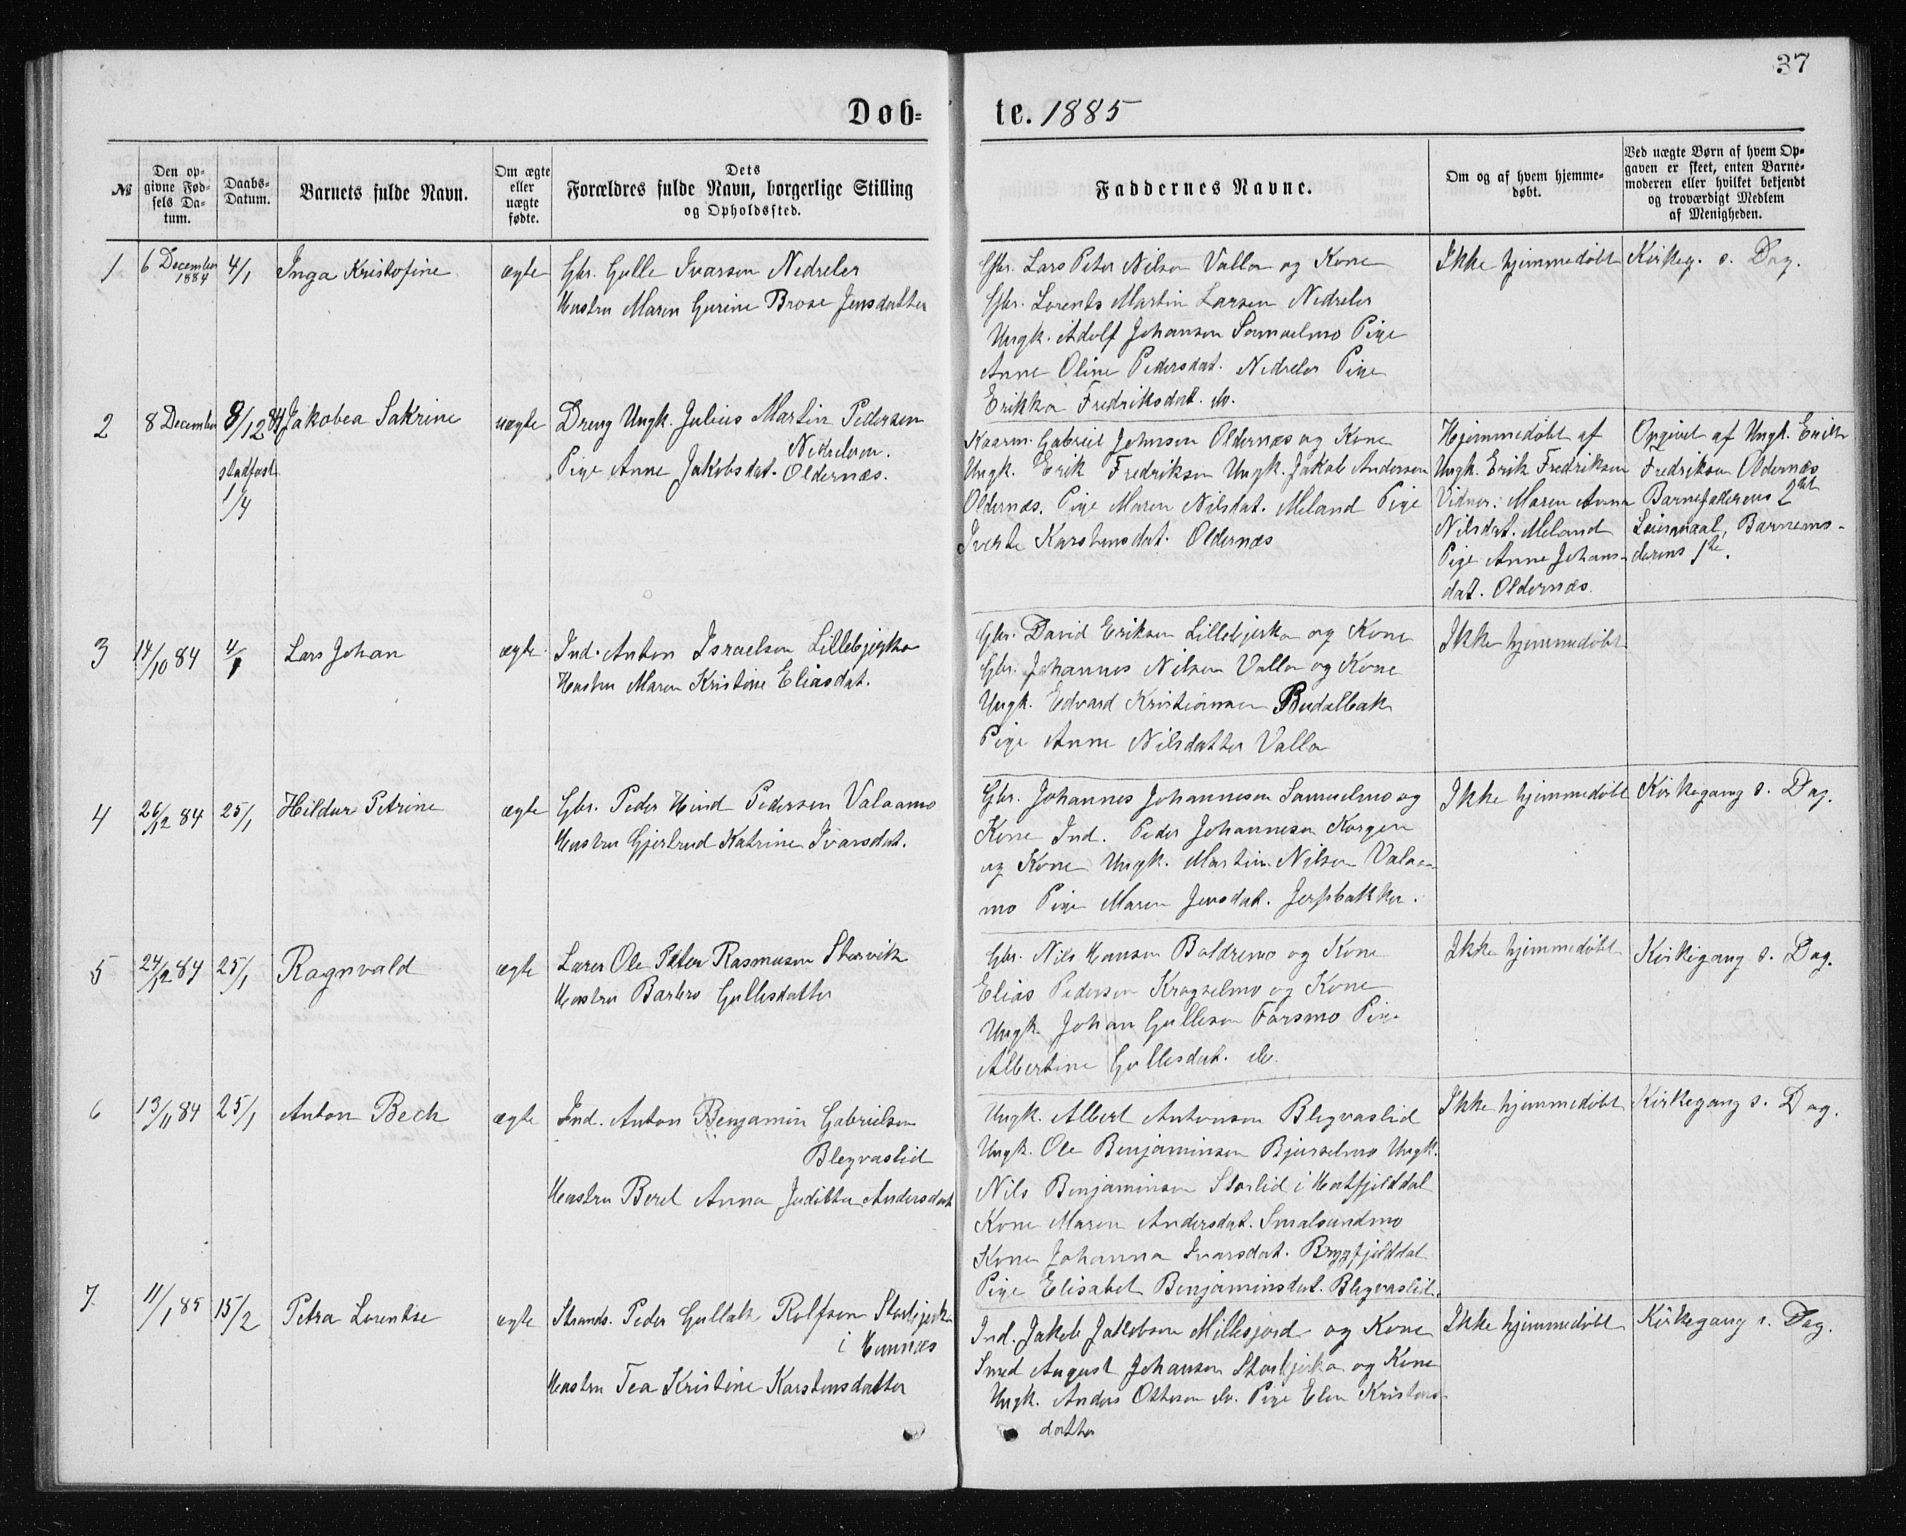 37
Døb-
te. 1885
№
Den op-
givne Fød-
sels Da-
tum.
Daabs-
Datum.
Barnets fulde Navn.
Om ægte
eller
uægte
fødte.
Dets
Forældres fulde Navn, borgerlige Stilling
og Opholdssted.
Faddernes Navne.
Om og af hvem hjemme-
døbt.
Ved uægte Børn af hvem Op-
gaven er skeet, enten Barne-
moderen eller hvilket bekjendt
og troværdigt Medlem
af Menigheden.
1
6 December
1884
4/1
Inga Kristofine
ægte
Gbr. Gulle Ivarsen Nedreler
Hustru Maren Gurine Brose Jensdatter
Gbr. Lars Peter Nilsen Valla og Kone
Gbr. Lorents Martin Larsen Nedreler
Ungk. Adolf Johansen Samuelmo Pige
Anne Oline Pedersdat. Nedreler Pige
Erikka Fredriksdat. do.
Ikke hjemmedøbt
Kirkeg. s. Dag.
2
8 December
8/12 84
stadfæst
1/4
Jakobea Sakrine
uægte
Dreng Ungk. Julius Martin Pedersen
Nedreleren.
Pige Anne Jakobsdat. Oldernæs.
Kaarm. Gabriel Johnsen Oldernæs og Kone
Ungk. Erik Fredriksen Ungk. Jakob Andersen
Oldernæs. Pige Maren Nilsdat. Meland Pige
Karstensdat. Oldernæs
Hjemmedøbt af
Ungk. Erik Fredriksen
Vidner: Maren Anna
Nilsdat. Meland
Pige Anne Johans-
dat. Oldernæs.
Opgivet af Ungk. Erik
Fredriksen Oldernæs
Barnefaderens 2det
Leiermaal, Barnemo-
derens 1ste.
3
14/10 84
4/1
Lars Johan
ægte
Ind. Anton Israelsen Lillebjerka
Hustru Maren Kristine Eliasdat.
Gbr. David Eriksen Lillebjerka og Kone
Gbr. Johannes Nilsen Valla og Kone
Ungk. Edvard Kristiansen Budalbak
Pige Anne Nilsdatter Valla
Ikke hjemmedøbt
4
26/12 84
25/1
Hildur Petrine
ægte
Gbr. Peder Hind Pedersen Valaamo
Hustru Gjertrud Katrine Ivarsdat.
Gbr. Johannes Johannesen Samuelmo og
Kone Ind. Peder Johannesen Korgen
og Kone Ungk. Martin Nilsen Valaa-
mo Pige Maren Jensdat. Jerpbakken.
Ikke hjemmedøbt
Kirkegang s. Dag.
5
24/12 84
25/1
Ragnvald
ægte
Lærer Ole Peter Rasmusen Storvik
Hustru Barbro Gullesdatter
Gbr. Nils Hansen Baldremo og Kone
Elias Pedersen Krogselmo og Kone
Ungk. Johan Gullesen Forsmo Pige
Albertine Gullesdat. do.
Ikke hjemmedøbt
Kirkegang s. Dag.
6
13/11 84
25/1
Anton Bech
ægte
Ind. Anton Benjamin Gabrielsen
Blegvaslid
Hustru Beret Anna Juditha Andersdat
Ungk. Albert Antonsen Blegvaslid
Ungk. Ole Benjaminsen Bjurselmo Ungk.
Nils Benjaminsen Storlid i Hatfjelddal
Kone Maren Andersdat. Smalsundmo
Kone Johanna Ivarsdat. Brygfjelddal
Pige Elisabet Benjaminsdat. Blegvaslid.
Ikke hjemmedøbt
Kirkegang s. Dag.
7.
11/1 85
15/2
Petra Lorentse
ægte
Strands. Peder Gullak Rolfsen Storbjerka
i Hemnæs
Hustru Tea Kristine Karstensdatter
Ind. Jakob Jakobsen Millesjord og Kone
Smed August Johansen Storbjerka og Kone
Ungk. Anders Ottesen do. Pige Elen Kristens-
datter
Ikke hjemmedøbt
Kirkegang s. Dag.